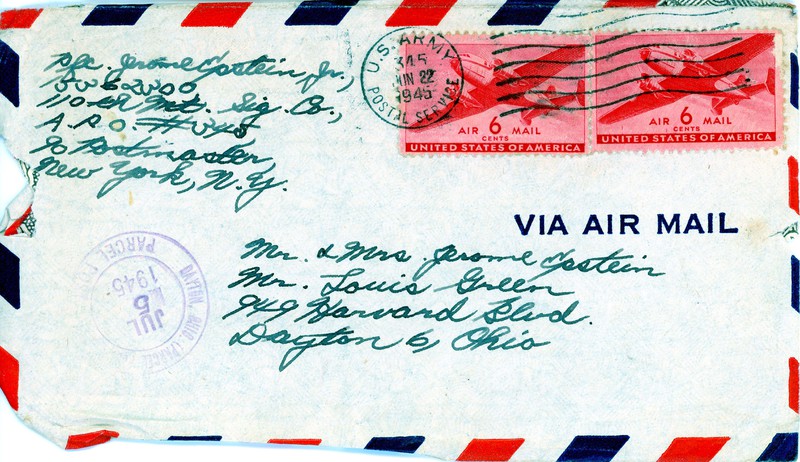 Pfc. Jerome Epstein, Jr.,
110th Mtr. Sig. Co.,
A.P.O. #345
% Postmaster,
New York, N.Y.
U.S. ARMY
345
JUN 22
1945
POSTAL SERVICE
AIR 6 MAIL
CENTS
UNITED STATES OF AMERICA
AIR 6 MAIL
CENTS
UNITED STATES OF AMERICA
VIA AIR MAIL
Mr. & Mrs. Jerome Epstein
Mr. Louis Green
949 Harvard Blvd.
Dayton 6, Ohio
DAYTON, OHIO
PARCEL
JUL
5
1945